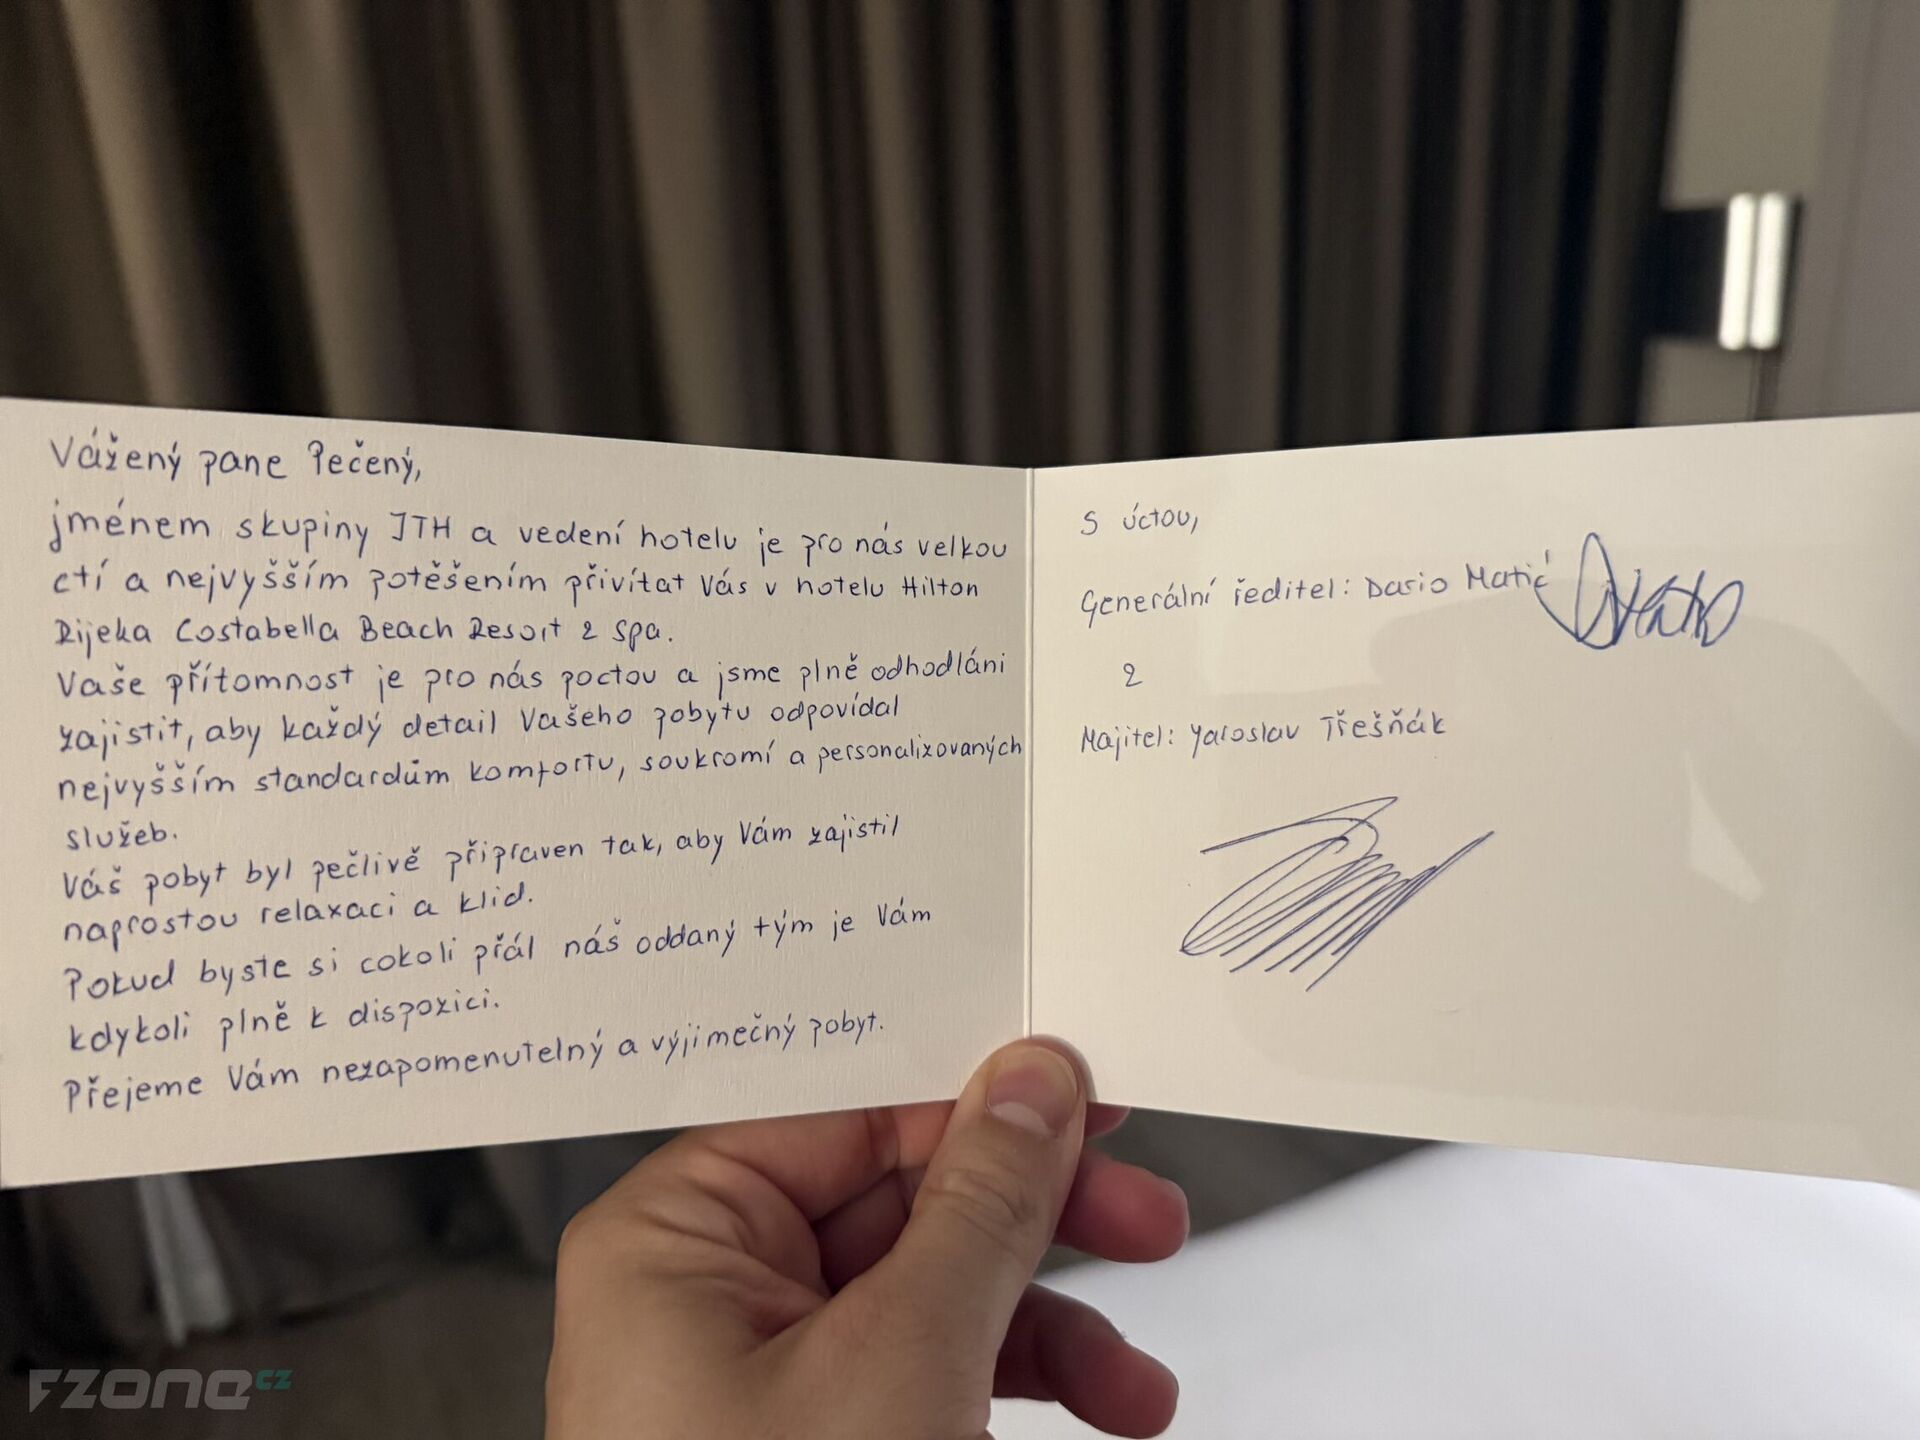 Vážený pane Pečený,
jménem skupiny JTH a vedení hotelu je pro nás velkou
ctí a nejvyšším potěšením přivítat Vás v hotelu Hilton
Rijeka Costabella Beach Resort & Spa.
Vaše přítomnost je pro nás poctou a jsme plně odhodláni
zajistit, aby každý detail Vašeho pobytu odpovídal
nejvyšším standardům komfortu, soukromí a personalizovaných
služeb.
Váš pobyt byl pečlivě připraven tak, aby Vám zajistil
naprostou relaxaci a klid.
Pokud byste si cokoli přál náš oddaný tým je Vám
kdykoli plně k dispozici.
Přejeme Vám nezapomenutelný a výjimečný pobyt.
S úctou,
Generální ředitel: Dario Matić
&
Majitel: Yaroslav Třešňák
fzone.cz